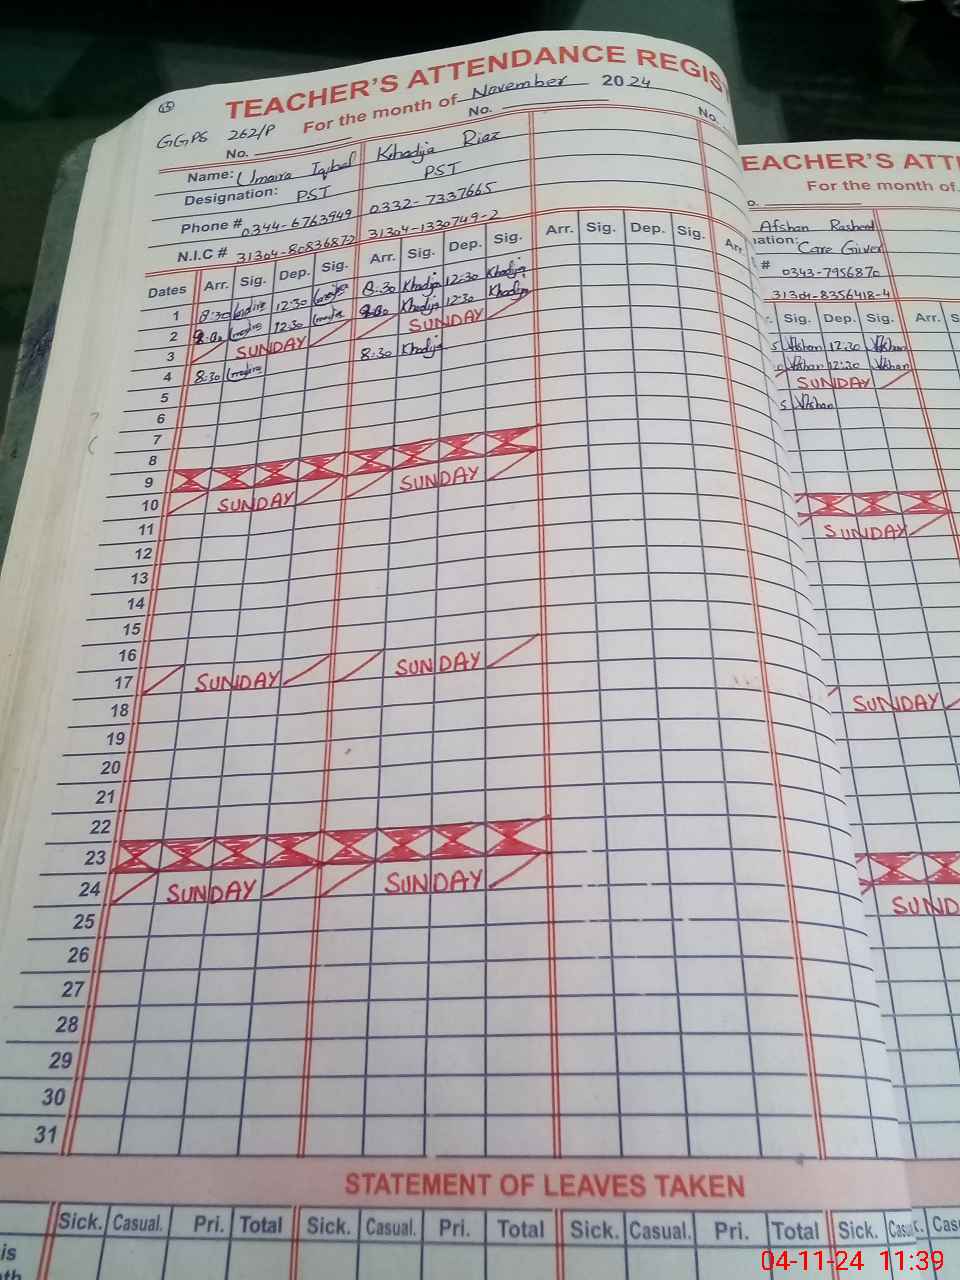 15
TEACHER'S ATTENDANCE REGIS
GGPS 262/P
For the month of November 2024
No. No. No.
Name: Umaira Iqbal Khadija Riaz
Designation: PST PST
Phone # 0344-6763949 0332-7337665
N.I.C # 31304-80836872 31304-1330749-2
Dates Arr. Sig. Dep. Sig. Arr. Sig. Dep. Sig. Arr. Sig. Dep. Sig. Arr.
1 8:30 12:30 8:30 Khadija 12:30 Khadija
2 8:00 12:30 8:00 Khadija 12:30 Khadija
3 SUNDAY SUNDAY
4 8:30 8:30 Khadija
5
6
7
8
9
10 SUNDAY SUNDAY
11
12
13
14
15
16
17 SUNDAY SUNDAY
18
19
20
21
22
23
24 SUNDAY SUNDAY
25
26
27
28
29
30
31
STATEMENT OF LEAVES TAKEN
Sick. Casual. Pri. Total Sick. Casual. Pri. Total Sick. Casual. Pri. Total Sick. Cas
is
th
EACHER'S ATT
For the month of
o.
Afshan Rasheed
nation: Care Giver
# 0343-7956870
31304-8356418-4
Sig. Dep. Sig. Arr. S
5 Afshan 12:30 Afshan
Afshan 12:30 Afshan
SUNDAY
5 Afshan
SUNDAY
SUNDAY
SUND
c. Cas
04-11-24 11:39